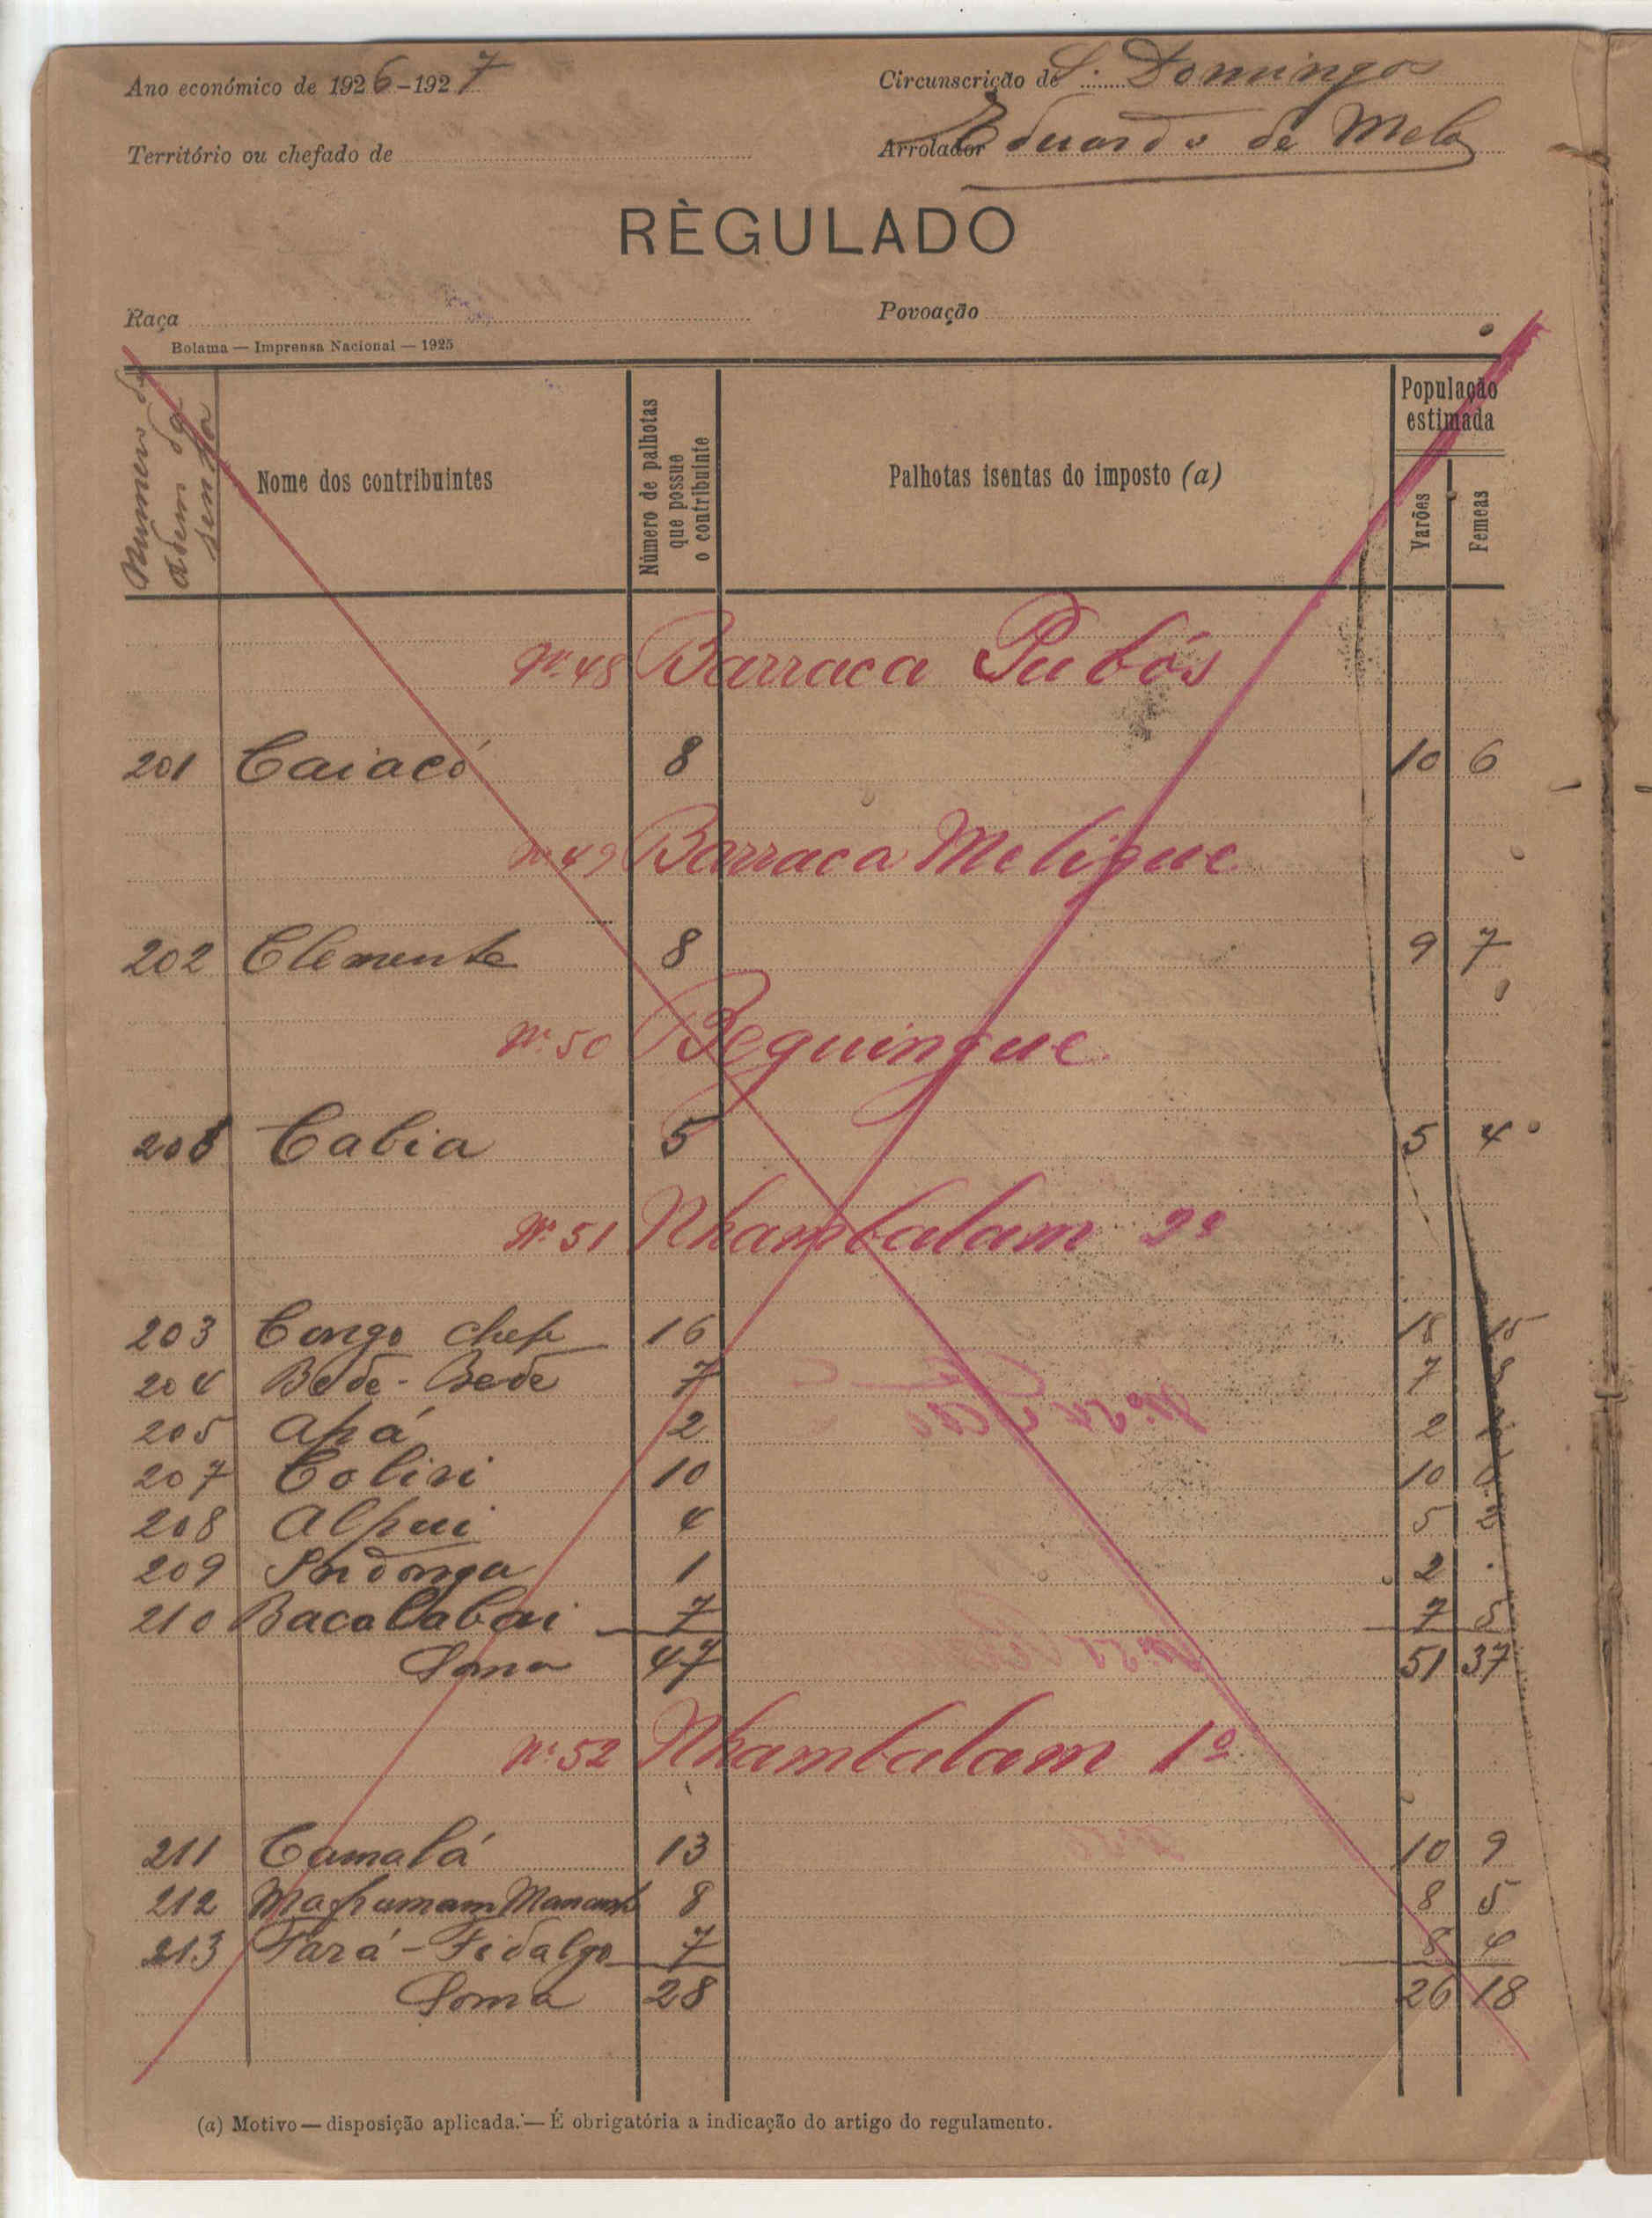 Ano económico de 1926-1927
Circunscrição de S. Domingos
Território ou chefado de
Arrolador Eduardo de Melo
RÈGULADO
Raça
Povoação
Bolama — Imprensa Nacional — 1925
Numero de
Nome dos contribuintes
Número de palhotas
que possue
o contribuinte
Palhotas isentas do imposto (a)
População
estimada
Varões
Femeas
Nº 48 Barraca Pubós
201 Caiacó 8 10 6
Nº 49 Barraca Meligue
202 Clemente 8 9 7
Nº 50 Beguingue
Cabia 5 5 4
Nº 51 Nhambalam 2º
203 Congo chefe 16 18 15
204 Bede-Bede 7 7
205 Apá 2 2
207 Coliri 10 10
208 Alpui 4 5 2
209 Indonga 1 2
210 Bacalabai 7 7 5
Soma 47 51 37
Nº 52 Nhambalam 1º
211 Camalá 13 10 9
212 8 8 5
213 Fará-Fidalgo 7 8 4
Soma 28 26 18
(a) Motivo — disposição aplicada. — É obrigatória a indicação do artigo do regulamento.